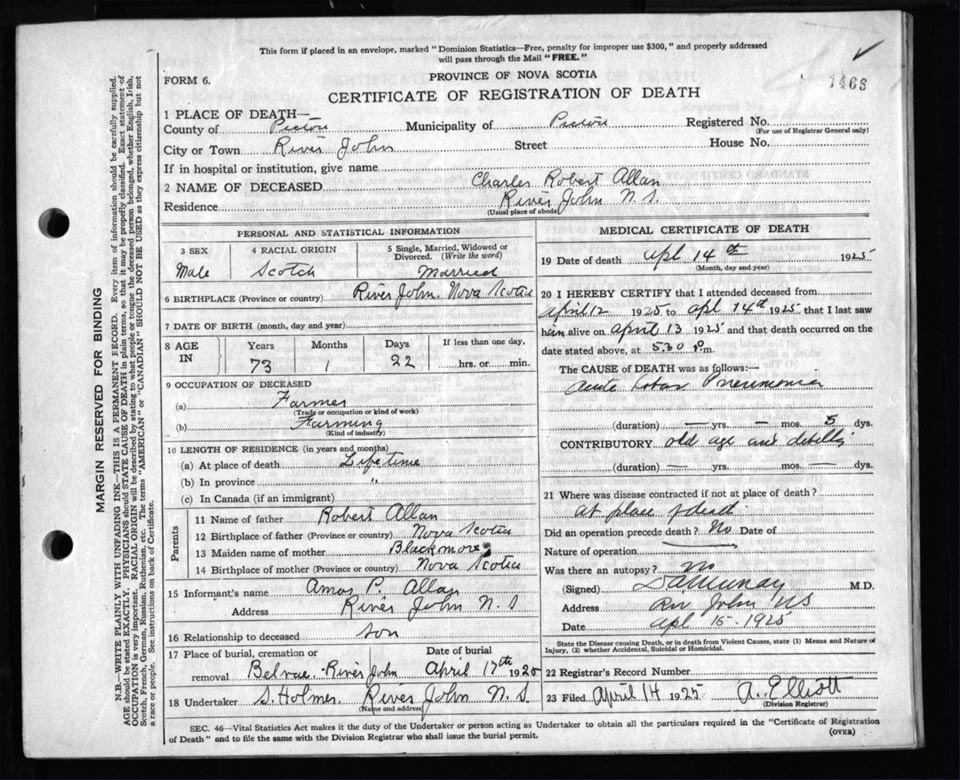 This form if placed in an envelope, marked "Dominion Statistics—Free, penalty for improper use $300," and properly addressed
will pass through the Mail "FREE."
FORM 6.
PROVINCE OF NOVA SCOTIA
1468
CERTIFICATE OF REGISTRATION OF DEATH
1 PLACE OF DEATH—
County of Pictou Municipality of Pictou Registered No.
(For use of Registrar General only)
City or Town River John Street House No.
If in hospital or institution, give name
2 NAME OF DECEASED Charles Robert Allan
Residence River John N.S.
(Usual place of abode)
PERSONAL AND STATISTICAL INFORMATION
3 SEX 4 RACIAL ORIGIN 5 Single, Married, Widowed or
Divorced. (Write the word)
Male Scotch Married
6 BIRTHPLACE (Province or country) River John. Nova Scotia
7 DATE OF BIRTH (month, day and year)
8 AGE IN Years Months Days If less than one day.
73 1 22 hrs. or min.
9 OCCUPATION OF DECEASED
(a) Farmer
(Trade or occupation or kind of work)
(b) Farming
(Kind of industry)
10 LENGTH OF RESIDENCE (in years and months)
(a) At place of death Lifetime
(b) In province "
(c) In Canada (if an immigrant)
Parents
11 Name of father Robert Allan
12 Birthplace of father (Province or country) Nova Scotia
13 Maiden name of mother Blackmore
14 Birthplace of mother (Province or country) Nova Scotia
15 Informant's name Amos P. Allan
Address River John N.S
16 Relationship to deceased son
17 Place of burial, cremation or Date of burial
removal Belvue River John April 17th 1925
18 Undertaker S. Holmes River John N.S
(Name and address)
MEDICAL CERTIFICATE OF DEATH
19 Date of death Apl 14th 1925
(Month, day and year)
20 I HEREBY CERTIFY that I attended deceased from
April 12 1925 to Apl 14th 1925 that I last saw
him alive on April 13 1925 and that death occurred on
date stated above, at 5.30 P.m.
The CAUSE of DEATH was as follows:—
Acute Lobar Pneumonia
(duration) — yrs. — mos. 5 dys.
CONTRIBUTORY old age and debility
(duration) — yrs. mos. — dys.
21 Where was disease contracted if not at place of death?
At place of death.
Did an operation precede death? No Date of
Nature of operation
Was there an autopsy? No
(Signed) M.D.
Address River John NS
Date Apl 15 1925
State the Disease causing Death, or in death from Violent Causes, state (1) Means and Nature of
Injury, (2) whether Accidental, Suicidal or Homicidal.
22 Registrar's Record Number
23 Filed April 14 1925 A. Elliott
(Division Registrar)
SEC. 46—Vital Statistics Act makes it the duty of the Undertaker or person acting as Undertaker to obtain all the particulars required in the "Certificate of Registration
of Death" and to file the same with the Division Registrar who shall issue the burial permit.
(OVER)
MARGIN RESERVED FOR BINDING
N.B.—WRITE PLAINLY WITH UNFADING INK—THIS IS A PERMANENT RECORD. Every item of information should be carefully supplied.
AGE should be stated EXACTLY. PHYSICIANS should STATE CAUSE OF DEATH in plain terms, so that it may be properly classified. Exact statement of
OCCUPATION is very important. RACIAL ORIGIN will be described by stating to what people or tongue the deceased person belonged, whether English, Irish,
Scotch, French, German, Russian, Ruthenian, etc. The terms "AMERICAN" or "CANADIAN" SHOULD NOT BE USED as they express citizenship but not
a race or people. See instructions on back of Certificate.